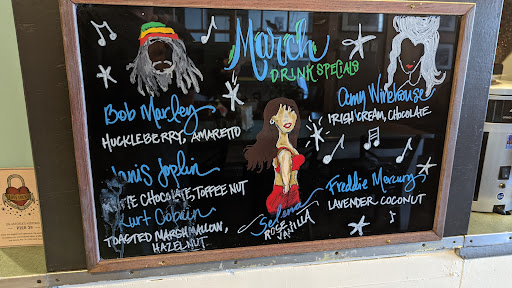 March
DRINK SPECIALS
Bob Marley
HUCKLEBERRY, AMARETTO
Janis Joplin
CHOCOLATE, TOFFEE NUT
Kurt Cobain
TOASTED MARSHMALLOW,
HAZELNUT
Selena
ROSE
VANILLA
Amy Winehouse
IRISH CREAM, CHOCOLATE
Freddie Mercury
LAVENDER COCONUT